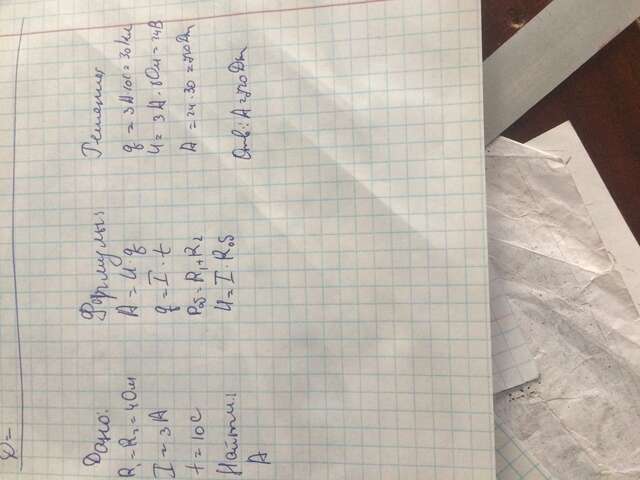 Дано:
R₁=R₂=4Ом
I=3А
t=10с
Найти:
А
Формулы:
A=U·q
q=I·t
Rоб=R₁+R₂
U=I·Rоб
Решение
q=3А·10с=30Кл
U=3А·8Ом=24В
A=24·30=720Дж
Отв: А=720Дж